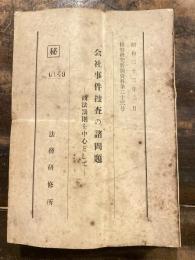 昭和三十三年 月
検察研究特別資料第二十三号
会社事件捜査の諸問題
―商法罰則を中心として―
秘
法務研修所